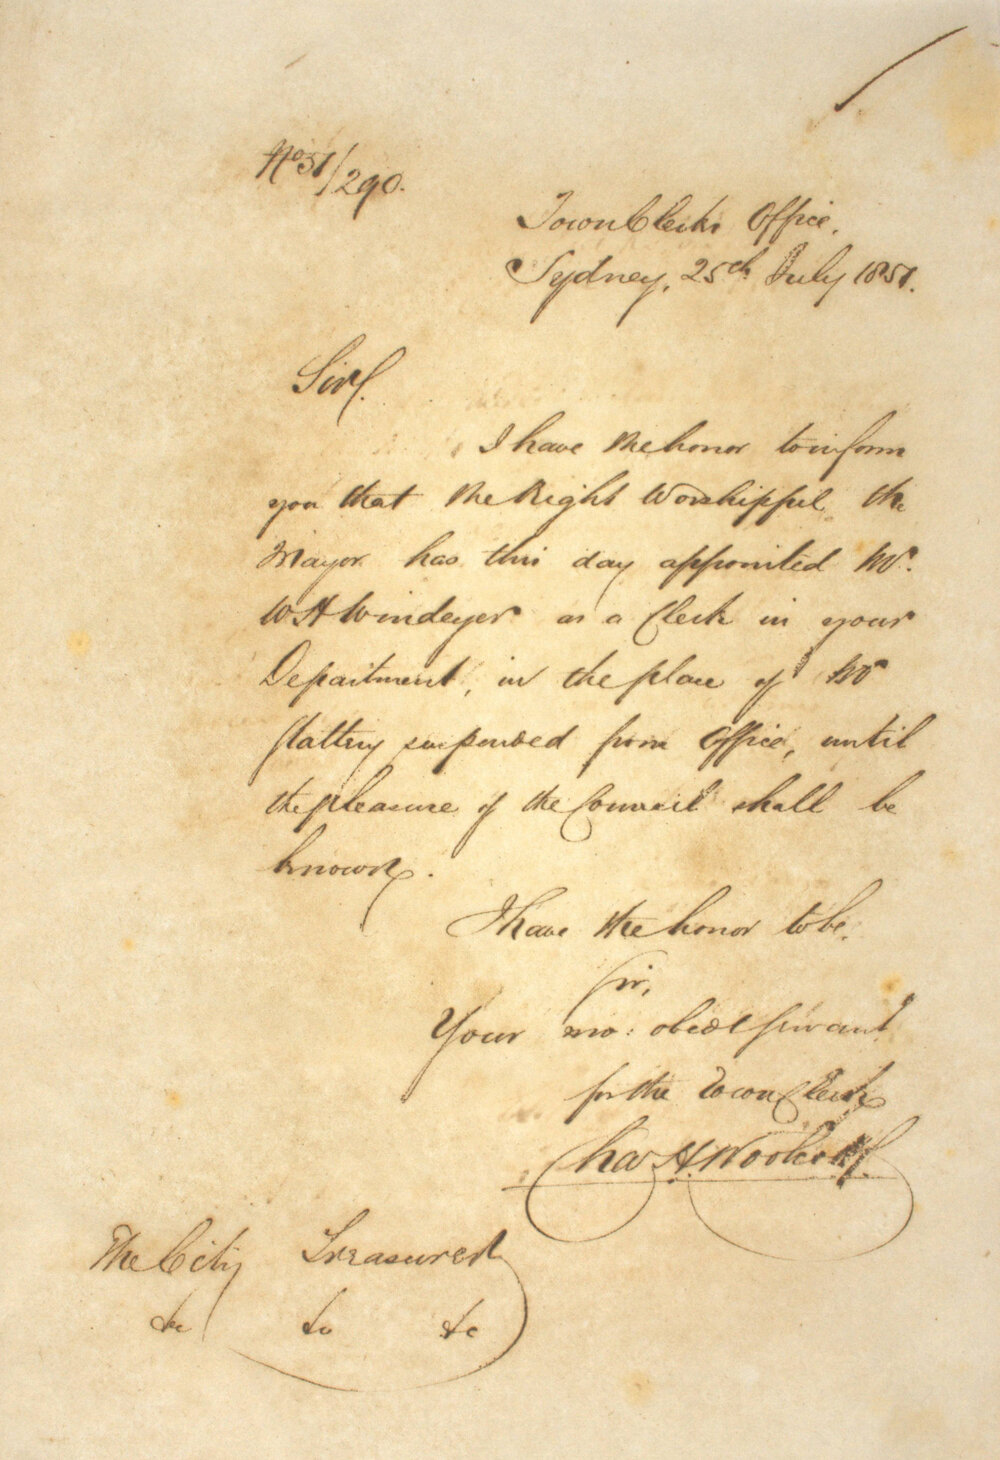 No 51/290.
Town Clerks Office,
Sydney, 25th July 1851.
Sir,
I have the honor to inform
you that the Right Worshipful the
Mayor has this day appointed Mr.
W H Windeyer as a Clerk in your
Department, in the place of Mr
Slattery suspended from Office, until
the pleasure of the Council shall be
known.
I have the honor to be,
Sir,
Your mo: obedt servant
for the Town Clerk
Chas H Woolcott
The City Treasurer
&c &c &c